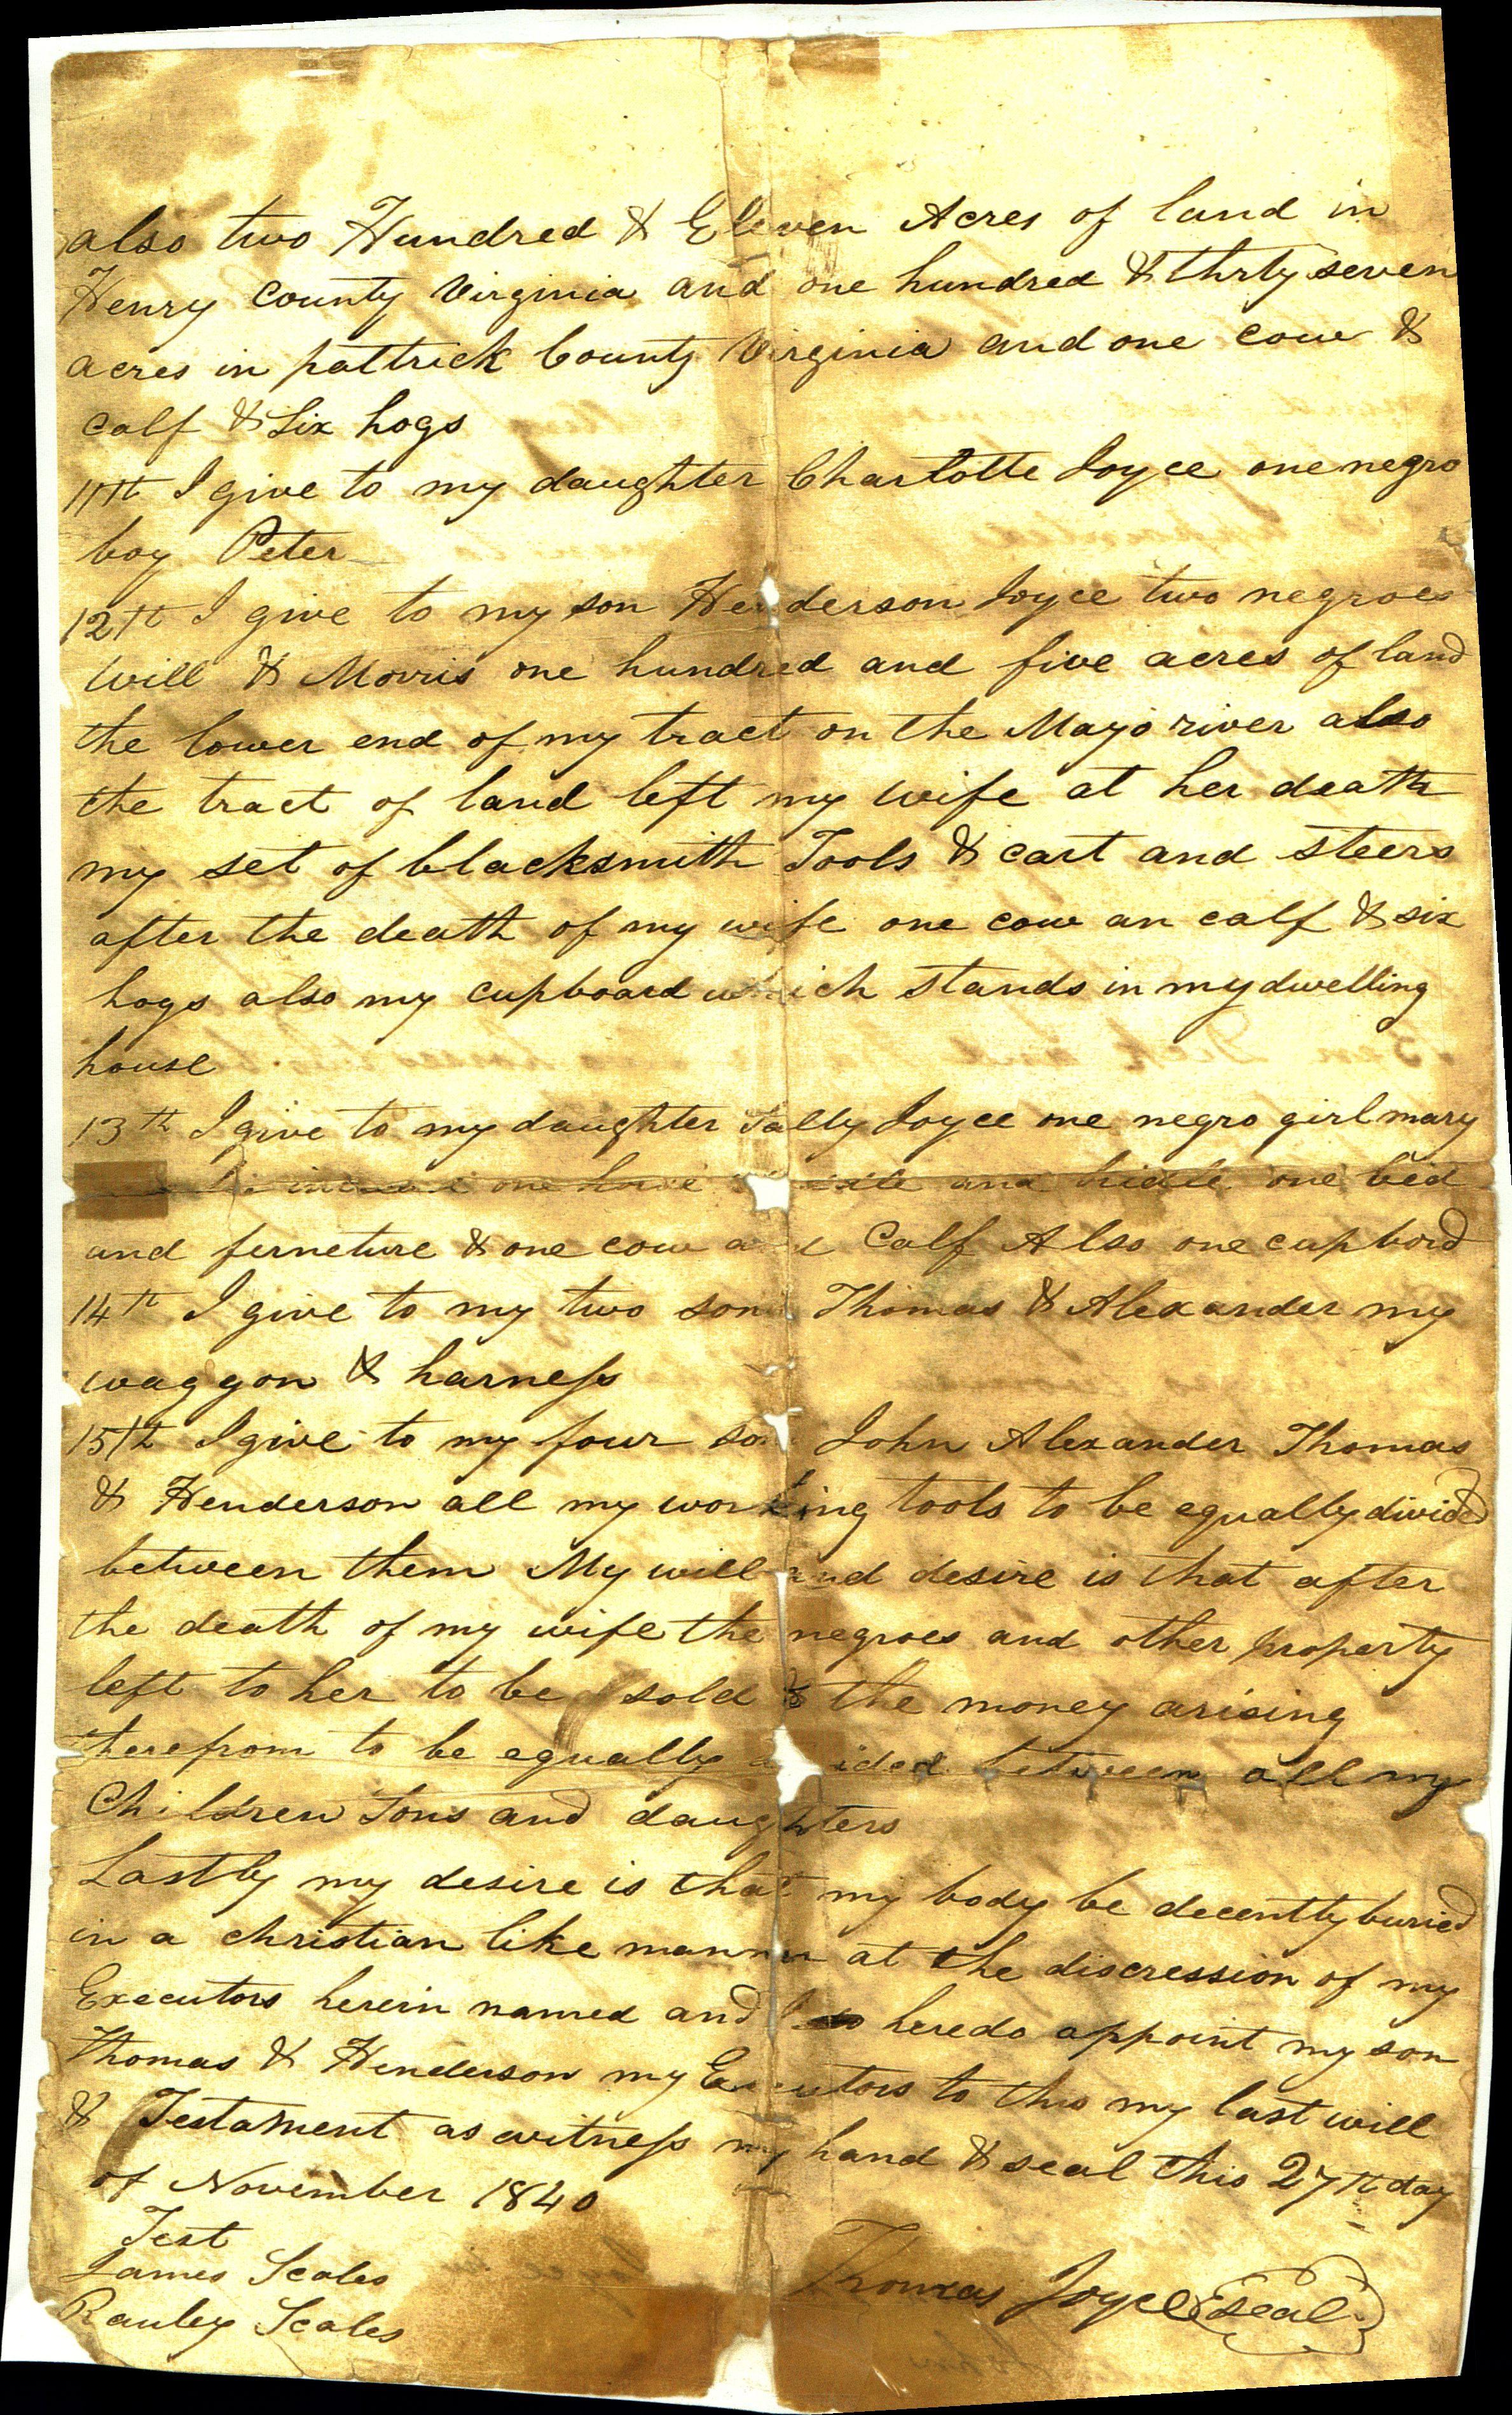 also two Hundred & Eleven Acres of land in
Henry County Virginia and one hundred & thrty seven
acres in pattrick County Virginia and one cow &
calf & Six hogs
11th I give to my daughter Charlotte Joyce one negro
boy Peter
12th I give to my son Henderson Joyce two negroes
Will & Morris one hundred and five acres of land
the lower end of my tract on the Mayo river also
the tract of land left my wife at her death
my set of blacksmith Tools & cart and steers
after the death of my wife one cow an calf & six
hogs also my cupboard which stands in my dwelling
house
13th I give to my daughter Sally Joyce one negro girl mary
one horse and bridle one bed
and ferneture & one cow and Calf Also one cupbord
14th I give to my two sons Thomas & Alexander my
waggon & harness
15th I give to my four son John Alexander Thomas
& Henderson all my working tools to be equally divided
between them My will and desire is that after
the death of my wife the negroes and other property
left to her to be sold & the money arising
therefrom to be equally divided between all my
Children Sons and daughters
Lastly my desire is that my body be decently buried
in a christian like manner at the discression of my
Executors herein named and heredo appoint my son
Thomas & Henderson my Executors to this my last will
& Testament as witness my hand & seal this 27th day
of November 1840
Test
James Scales
Rauley Scales
Thomas Joyce seal